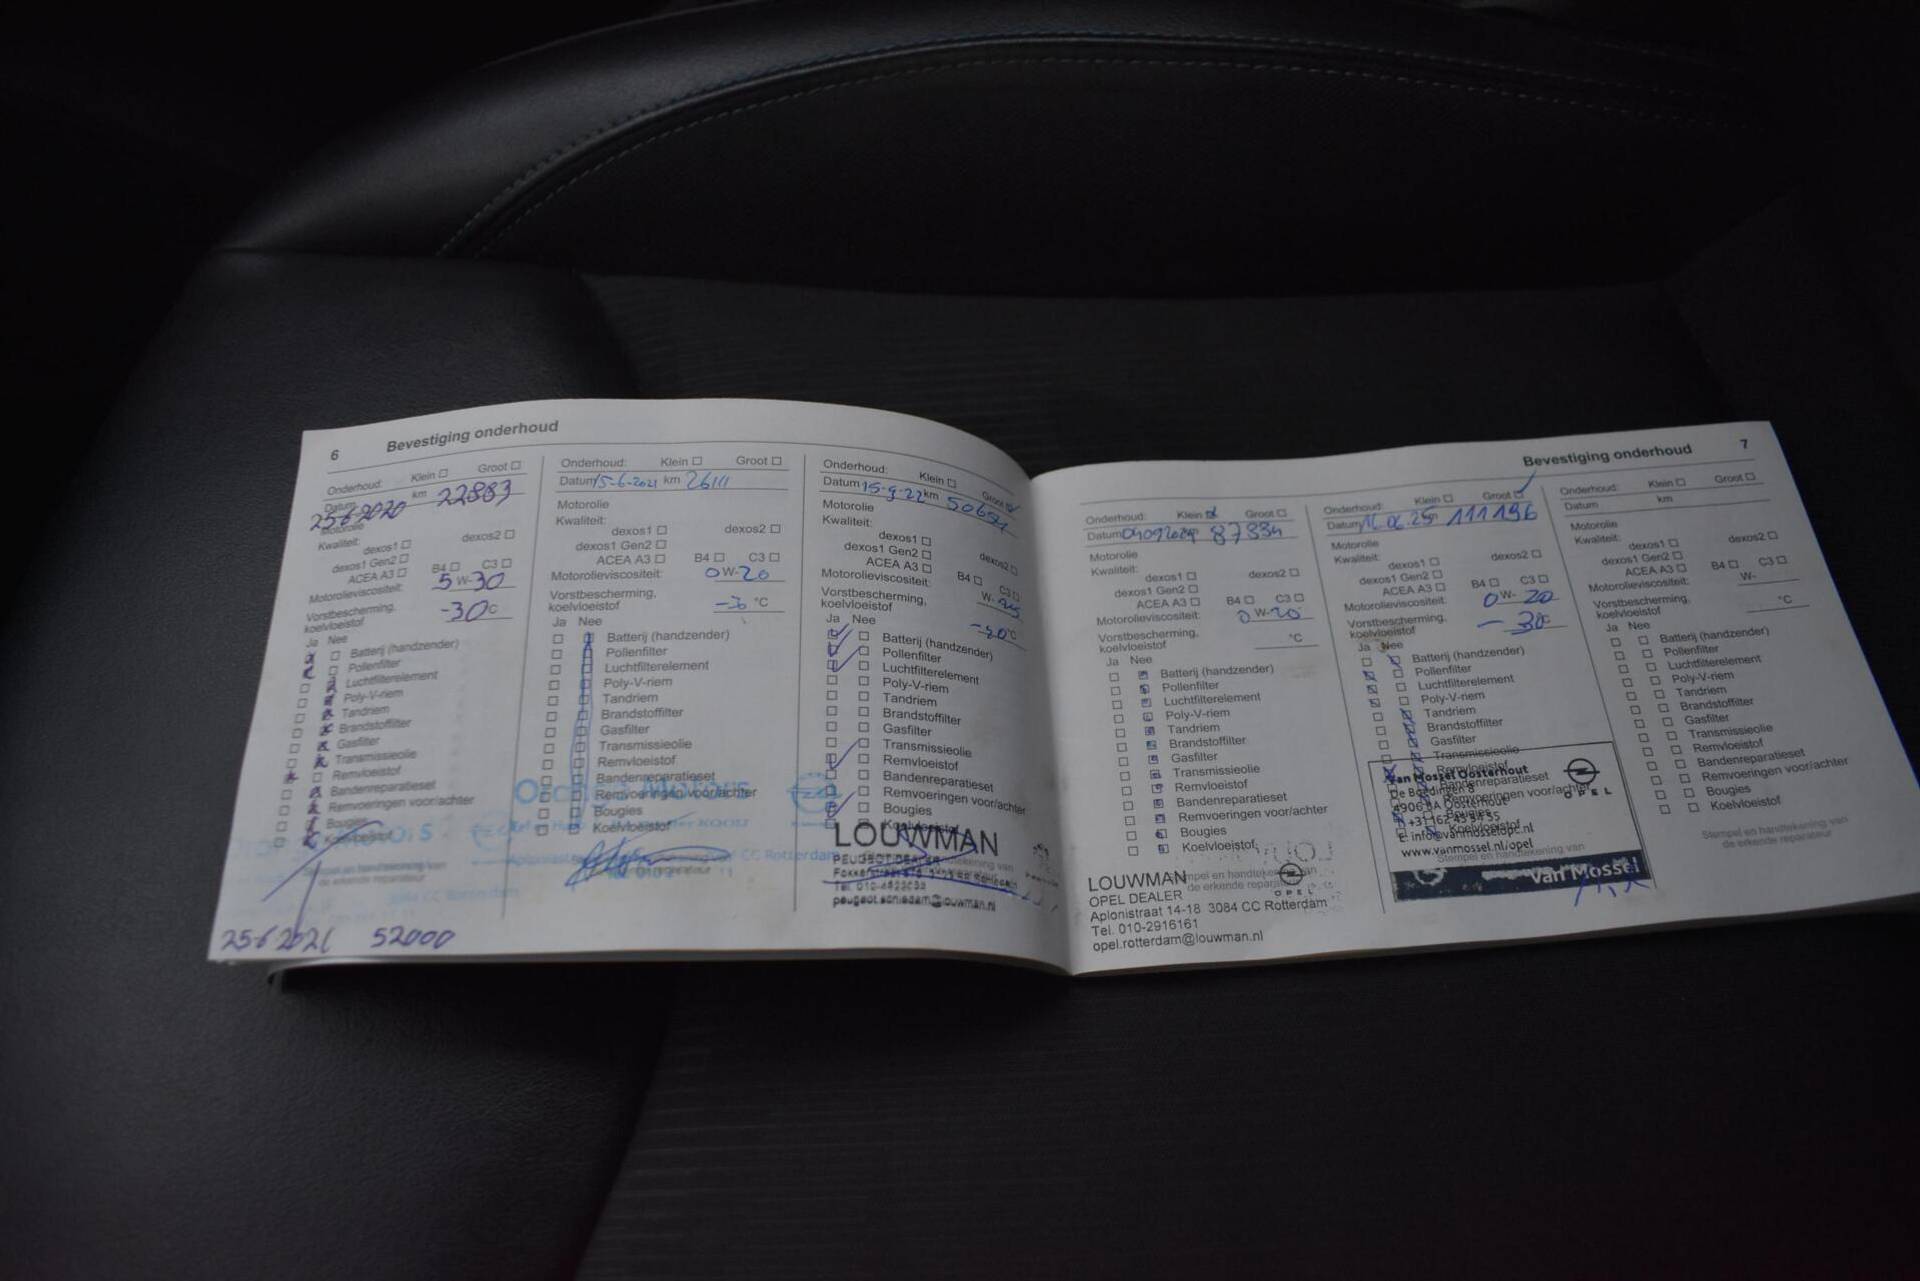 6 Bevestiging onderhoud
Onderhoud: Klein Groot
Datum 25-6-2020 km 22883
Motorolie
Kwaliteit: dexos1 dexos2
dexos1 Gen2
ACEA A3 B4 C3
Motorolieviscositeit: 5 W-30
Vorstbescherming, koelvloeistof -30°C
Ja Nee
Batterij (handzender)
Pollenfilter
Luchtfilterelement
Poly-V-riem
Tandriem
Brandstoffilter
Gasfilter
Transmissieolie
Remvloeistof
Bandenreparatieset
Remvoeringen voor/achter
Bougies
Koelvloeistof
de erkende reparateur
25-6-2021 52000
Onderhoud: Klein Groot
Datum 15-6-2021 km 26111
Motorolie
Kwaliteit:
dexos1 dexos2
dexos1 Gen2
ACEA A3 B4 C3
Motorolieviscositeit: 0 W-20
Vorstbescherming,
koelvloeistof °C
Ja Nee
Batterij (handzender)
Pollenfilter
Luchtfilterelement
Poly-V-riem
Tandriem
Brandstoffilter
Gasfilter
Transmissieolie
Remvloeistof
Bandenreparatieset
Remvoeringen voor/achter
Bougies
Koelvloeistof
Onderhoud: Klein Groot
Datum 15-9-22 km 50654
Motorolie
Kwaliteit:
dexos1 dexos2
dexos1 Gen2
ACEA A3 B4 C3
Motorolieviscositeit: W-
Vorstbescherming,
koelvloeistof °C
Ja Nee
Batterij (handzender)
Pollenfilter
Luchtfilterelement
Poly-V-riem
Tandriem
Brandstoffilter
Gasfilter
Transmissieolie
Remvloeistof
Bandenreparatieset
Remvoeringen voor/achter
Bougies
Koelvloeistof
LOUWMAN
PEUGEOT DEALER
peugeot.schiedam@louwman.nl
Bevestiging onderhoud 7
Onderhoud: Klein Groot
Datum 04092024 87334
Motorolie
Kwaliteit:
dexos1 dexos2
dexos1 Gen2
ACEA A3 B4 C3
Motorolieviscositeit: 0 W-20
Vorstbescherming,
koelvloeistof °C
Ja Nee
Batterij (handzender)
Pollenfilter
Luchtfilterelement
Poly-V-riem
Tandriem
Brandstoffilter
Gasfilter
Transmissieolie
Remvloeistof
Bandenreparatieset
Remvoeringen voor/achter
Bougies
Koelvloeistof
LOUWMAN
OPEL DEALER OPEL
Aplonistraat 14-18 3084 CC Rotterdam
Tel. 010-2916161
opel.rotterdam@louwman.nl
Onderhoud: Klein Groot
Datum 16.06.25 111196
Motorolie
Kwaliteit:
dexos1 dexos2
dexos1 Gen2
ACEA A3 B4 C3
Motorolieviscositeit: 0 W-20
Vorstbescherming,
koelvloeistof -30°C
Ja Nee
Batterij (handzender)
Pollenfilter
Luchtfilterelement
Poly-V-riem
Tandriem
Brandstoffilter
Gasfilter
Transmissieolie
Remvloeistof
Bandenreparatieset
Remvoeringen voor/achter
Bougies
Koelvloeistof
Van Mossel Oosterhout
OPEL
E: info@vanmosselopc.nl
www.vanmossel.nl/opel
Stempel en handtekening van
Van Mossel
Onderhoud: Klein Groot
Datum km
Motorolie
Kwaliteit:
dexos1 dexos2
dexos1 Gen2
ACEA A3 B4 C3
Motorolieviscositeit: W-
Vorstbescherming,
koelvloeistof °C
Ja Nee
Batterij (handzender)
Pollenfilter
Luchtfilterelement
Poly-V-riem
Tandriem
Brandstoffilter
Gasfilter
Transmissieolie
Remvloeistof
Bandenreparatieset
Remvoeringen voor/achter
Bougies
Koelvloeistof
Stempel en handtekening van
de erkende reparateur